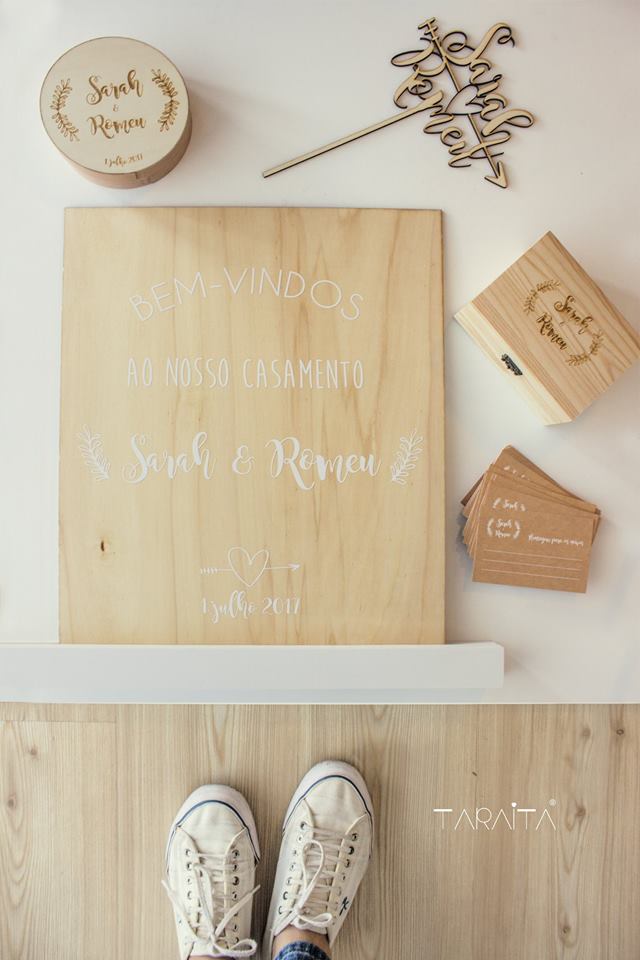 Sarah
&
Romeu
1 julho 2017
Sarah
Romeu
BEM-VINDOS
AO NOSSO CASAMENTO
Sarah & Romeu
1 julho 2017
Sarah
&
Romeu
Sarah
Sarah
Romeu
Mensagens para os noivos
TARAITA®